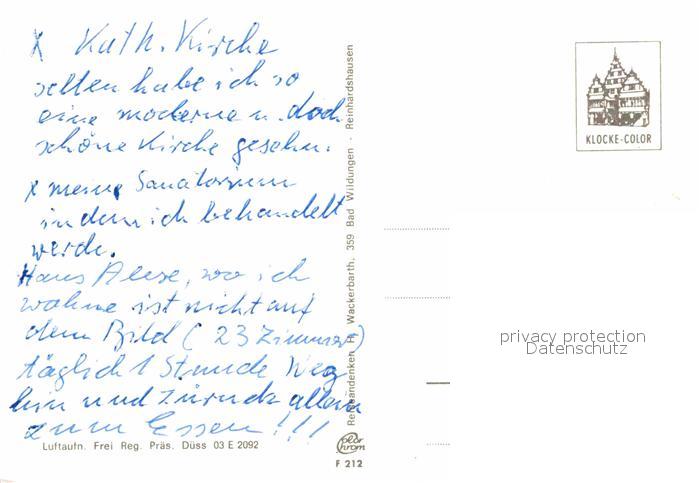 x Kath. Kirche
selten habe ich so
eine moderne u. doch
schöne Kirche gesehn.
x meine Sanatorium
in dem ich behandelt
werde.
Haus , wo ich
wohne ist nicht auf
dem Bild (23 Zimmer)
täglich 1 Stunde Weg
hin und zurück allein
zum Essen!!!
Luftaufn. Frei Reg. Präs. Düss 03 E 2092
Reiseandenken H. Wackerbarth, 359 Bad Wildungen - Reinhardshausen
F 212
KLOCKE-COLOR
privacy protection
Datenschutz